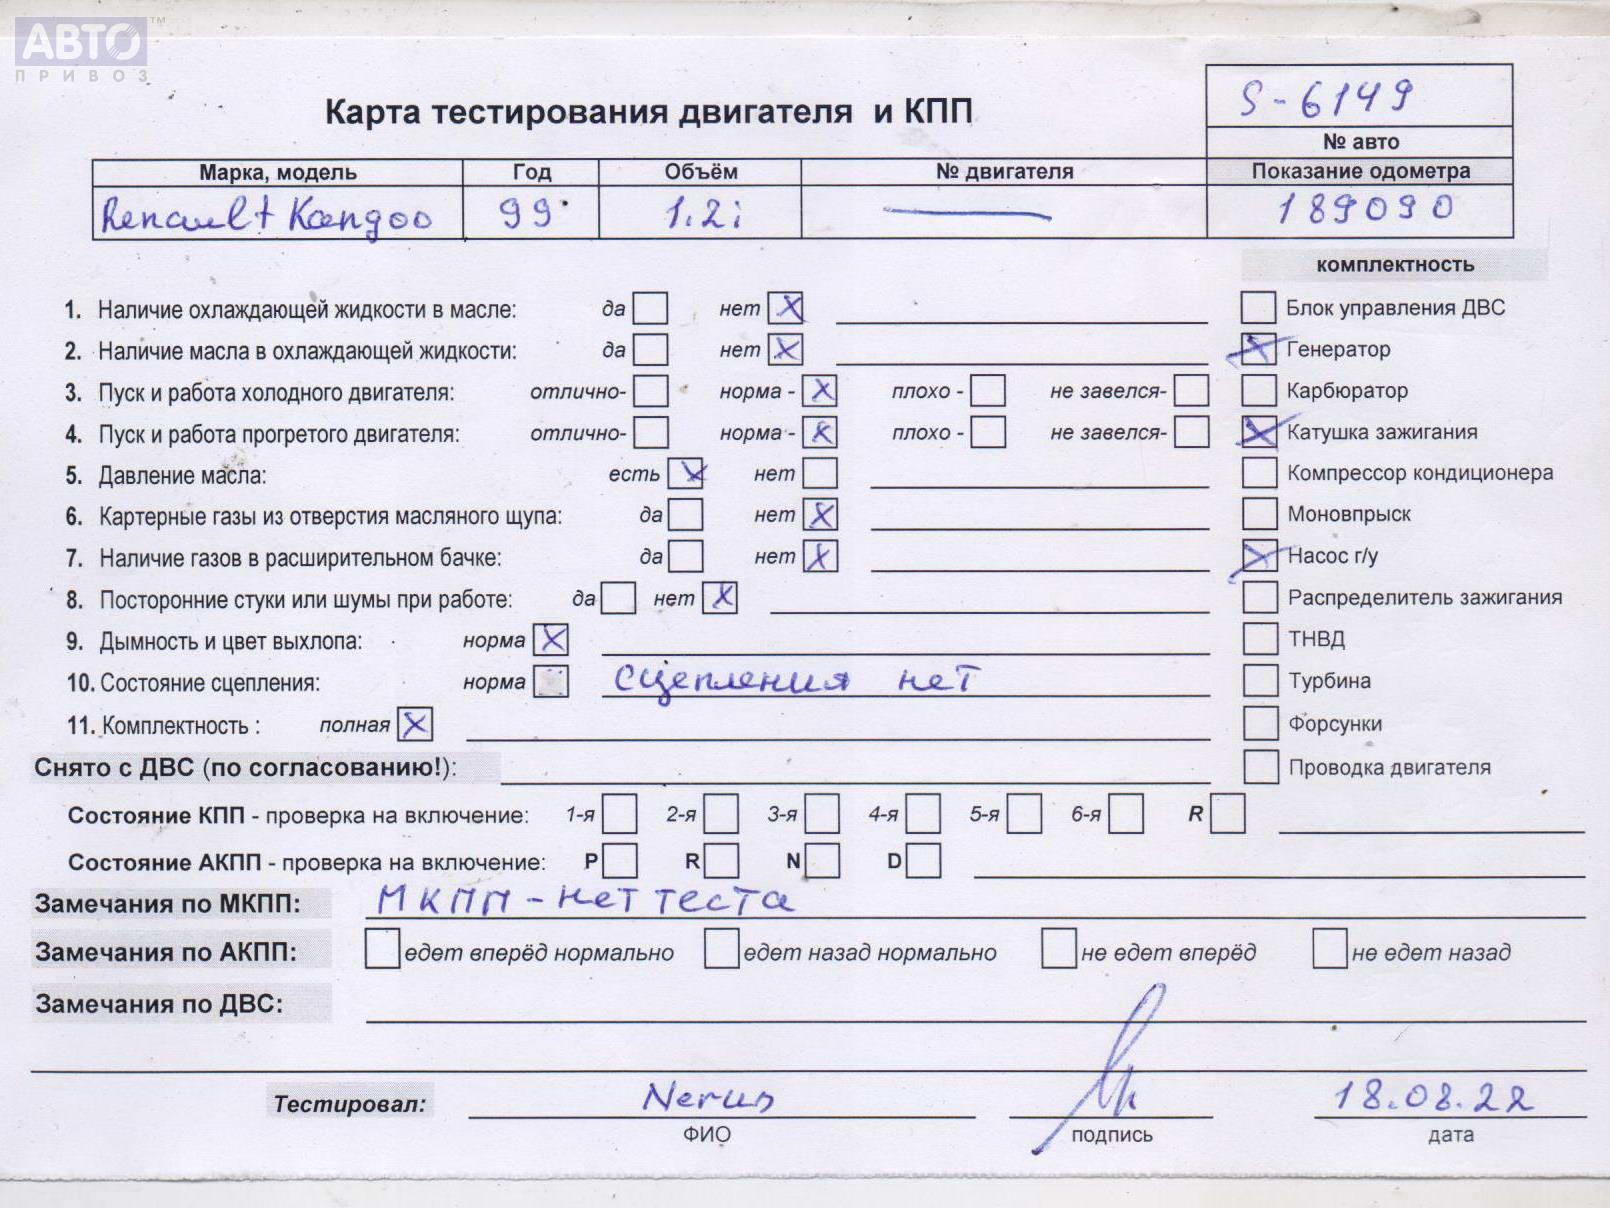 АВТО™
ПРИВОЗ
S-6149
Карта тестирования двигателя и КПП
№ авто
Марка, модель Год Объём № двигателя Показание одометра
Renault Kangoo 99 1.2i 189090
комплектность
1. Наличие охлаждающей жидкости в масле: да нет X Блок управления ДВС
2. Наличие масла в охлаждающей жидкости: да нет X X Генератор
3. Пуск и работа холодного двигателя: отлично- норма - X плохо - не завелся- Карбюратор
4. Пуск и работа прогретого двигателя: отлично- норма - X плохо - не завелся- X Катушка зажигания
5. Давление масла: есть X нет Компрессор кондиционера
6. Картерные газы из отверстия масляного щупа: да нет X Моновпрыск
7. Наличие газов в расширительном бачке: да нет X X Насос г/у
8. Посторонние стуки или шумы при работе: да нет X Распределитель зажигания
9. Дымность и цвет выхлопа: норма X ТНВД
10. Состояние сцепления: норма сцепления нет Турбина
11. Комплектность : полная X Форсунки
Снято с ДВС (по согласованию!): Проводка двигателя
Состояние КПП - проверка на включение: 1-я 2-я 3-я 4-я 5-я 6-я R
Состояние АКПП - проверка на включение: P R N D
Замечания по МКПП: МКПП - нет теста
Замечания по АКПП: едет вперёд нормально едет назад нормально не едет вперёд не едет назад
Замечания по ДВС:
Тестировал: 18.08.22
ФИО подпись дата